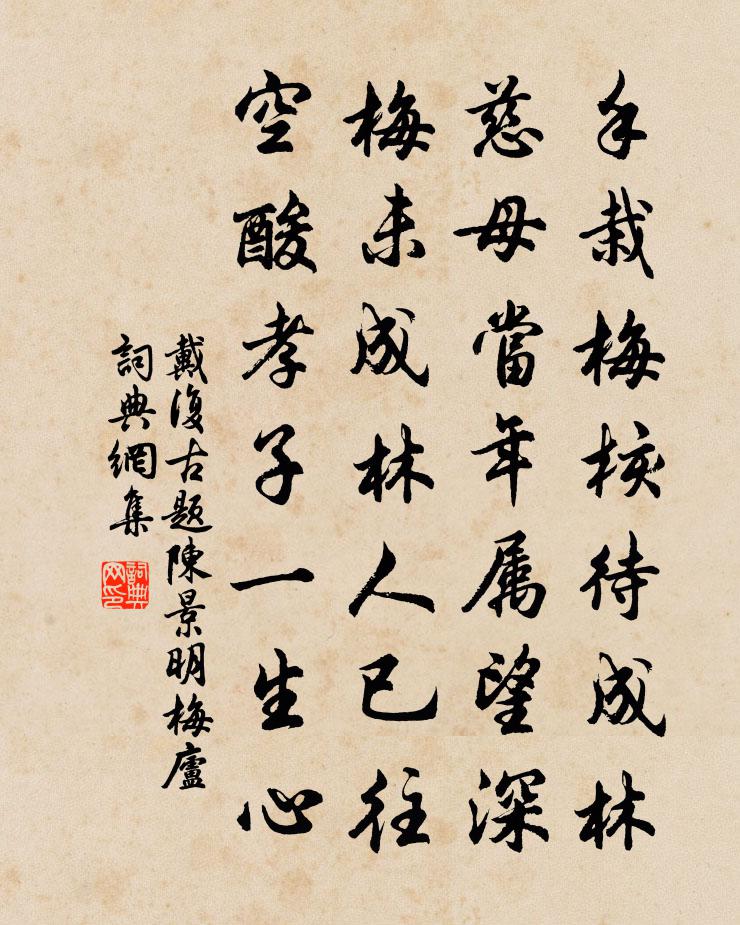 手栽梅核待成林
慈母當年属望深
梅未成林人已往
空酸孝子一生心
戴復古題陳景明梅廬
詞典網集
詞典
网印